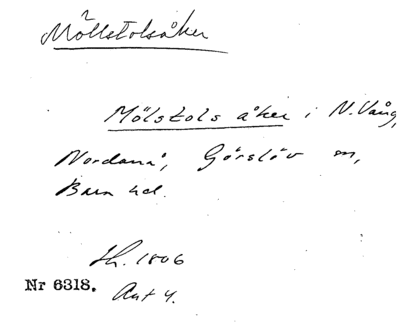 Möllstolsåker
Mölstols åker i N. Vång,
Nordanå, Görslöv sn,
Bara hd.
Sk. 1806
Nr 6318. Akt 4.